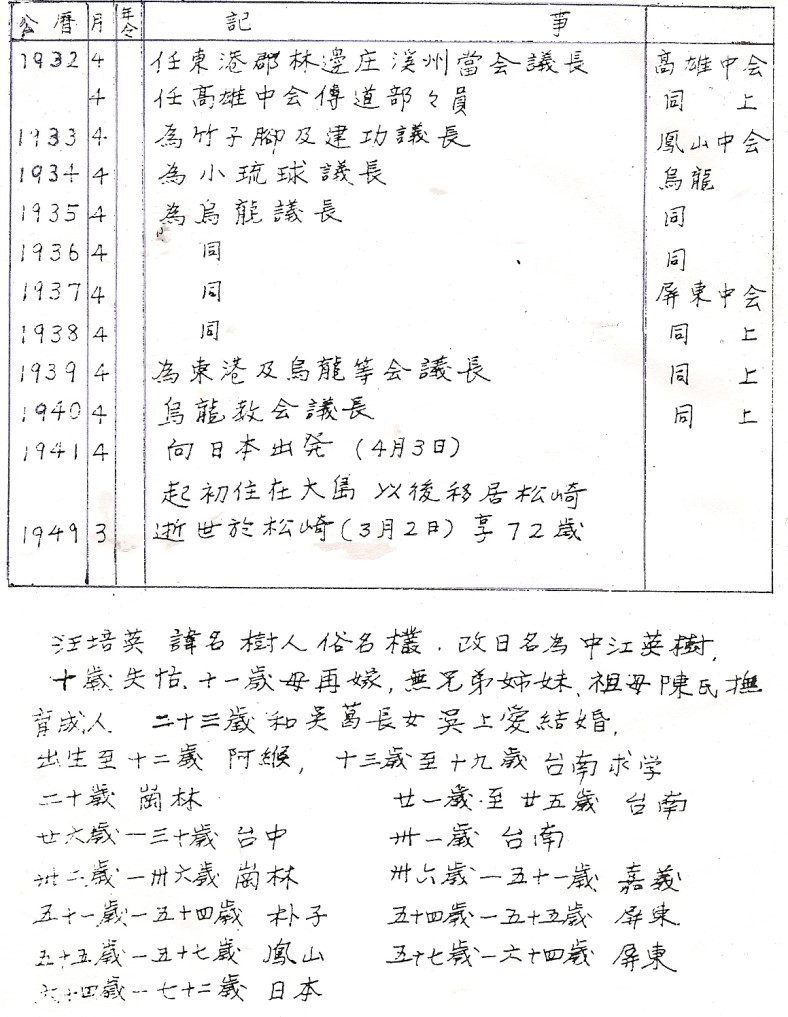 公曆 月 年令 記事
1932 4 任東港郡林邊庄溪州當会議長 高雄中会
4 任高雄中会傳道部々員 同上
1933 4 為竹子腳及建功議長 鳳山中会
1934 4 為小琉球議長 烏龍
1935 4 為烏龍議長 同
1936 4 同 同
1937 4 同 屏東中会
1938 4 同 同上
1939 4 為東港及烏龍等会議長 同上
1940 4 烏龍教会議長 同上
1941 4 向日本出発 (4月3日)
起初住在大島 以後移居松崎
1949 3 逝世於松崎(3月2日) 享72歲
汪培英 諱名樹人 俗名欉. 改日名為中江英樹,
十歲失怙、十一歲母再嫁, 無兄弟姉妹、祖母陳氏撫
育成人 二十三歲和吳葛長女吳上愛結婚,
出生至十二歲 阿緱, 十三歲至十九歲 台南求学
二十歲 崗林 廿一歲至廿五歲 台南
廿六歲—三十歲 台中 卅一歲 台南
卅二歲—卅六歲 崗林 卅六歲—五十一歲 嘉義
五十一歲—五十四歲 朴子 五十四歲—五十五歲 屏東
五十五歲—五十七歲 鳳山 五十七歲—六十四歲 屏東
六十四歲—七十二歲 日本